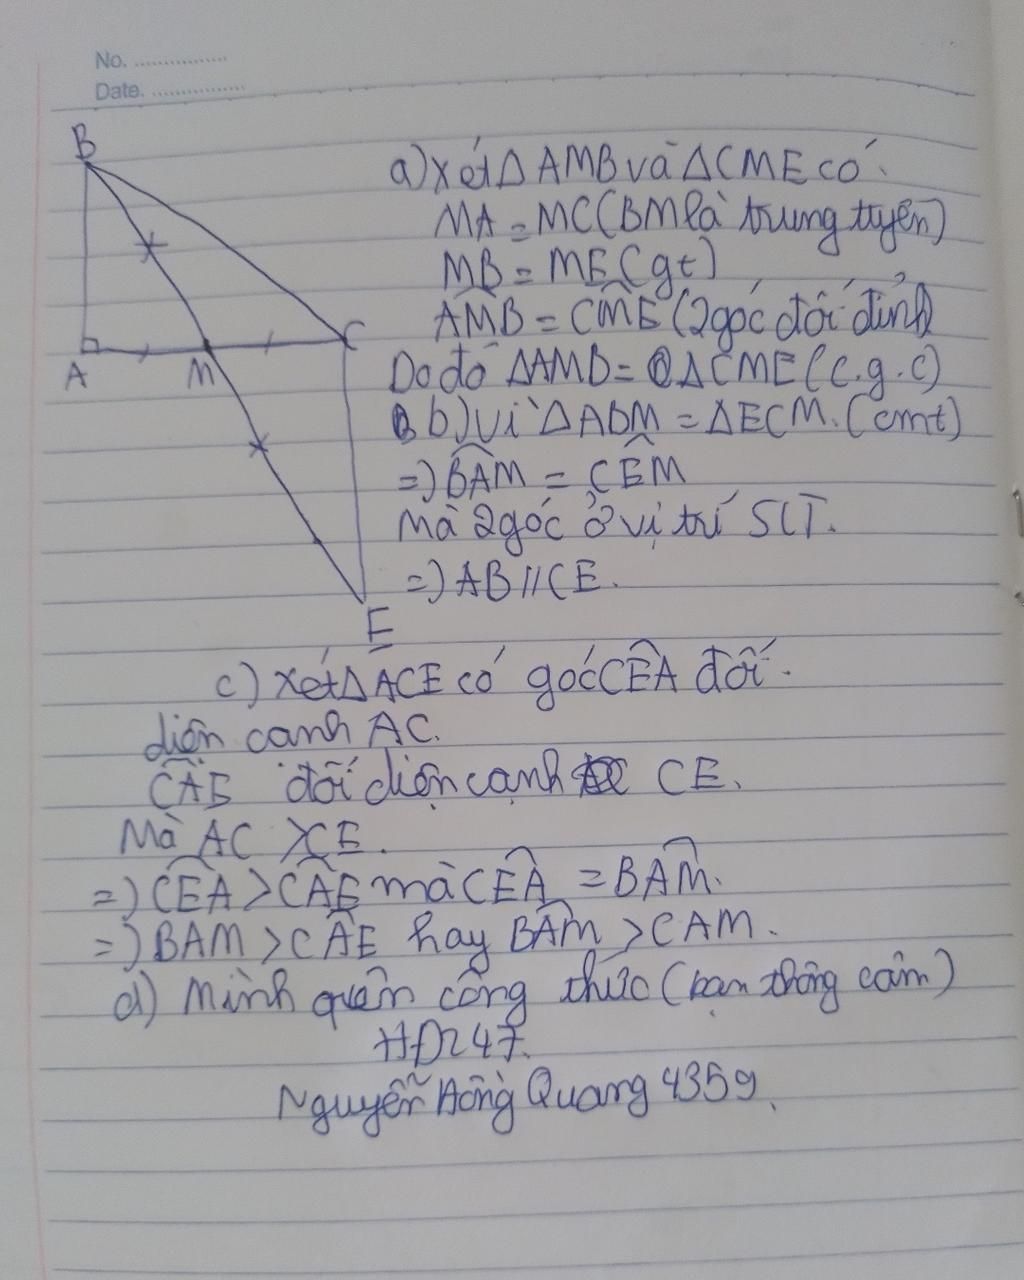 No. ................
Date. ................
B
A
M
C
E
a) Xét Δ AMB và Δ CME có.
MA = MC (BM là trung tuyến)
MB = ME (gt)
AMB = CME (2 góc đối đỉnh)
Do đó ΔAMB = ΔCME (c.g.c)
b) Vì ΔABM = ΔECM. (cmt)
=) BAM = CEM
Mà 2 góc ở vị trí SLT.
=) AB // CE.
c) Xét Δ ACE có góc CEA đối
diện cạnh AC.
CAE đối diện cạnh CE.
Mà AC > CE.
=) CEA > CAE mà CEA = BAM.
=) BAM > CAE hay BAM > CAM.
d) Mình quên công thức (bạn thông cảm)
HĐ247.
Nguyễn Hồng Quang 4359.